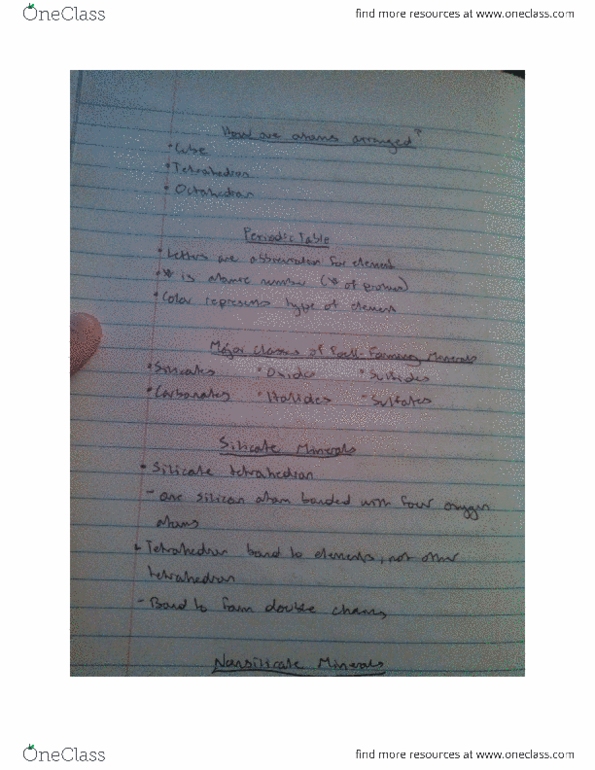 OneClass find more resources at www.oneclass.com
How are atoms arranged?
• Cube
• Tetrahedron
• Octahedron
Periodic Table
• Letters are abbreviation for element
• # is atomic number (# of protons)
• Color represents type of element
Major Classes of Rock-Forming Minerals
• Silicates • Oxides • Sulfides
• Carbonates • Halides • Sulfates
Silicate Minerals
• Silicate tetrahedron
- one silicon atom bonded with four oxygen
atoms
• Tetrahedron bond to elements, not other
tetrahedron
- Bond to form double chains
Nonsilicate Minerals
OneClass find more resources at www.oneclass.com